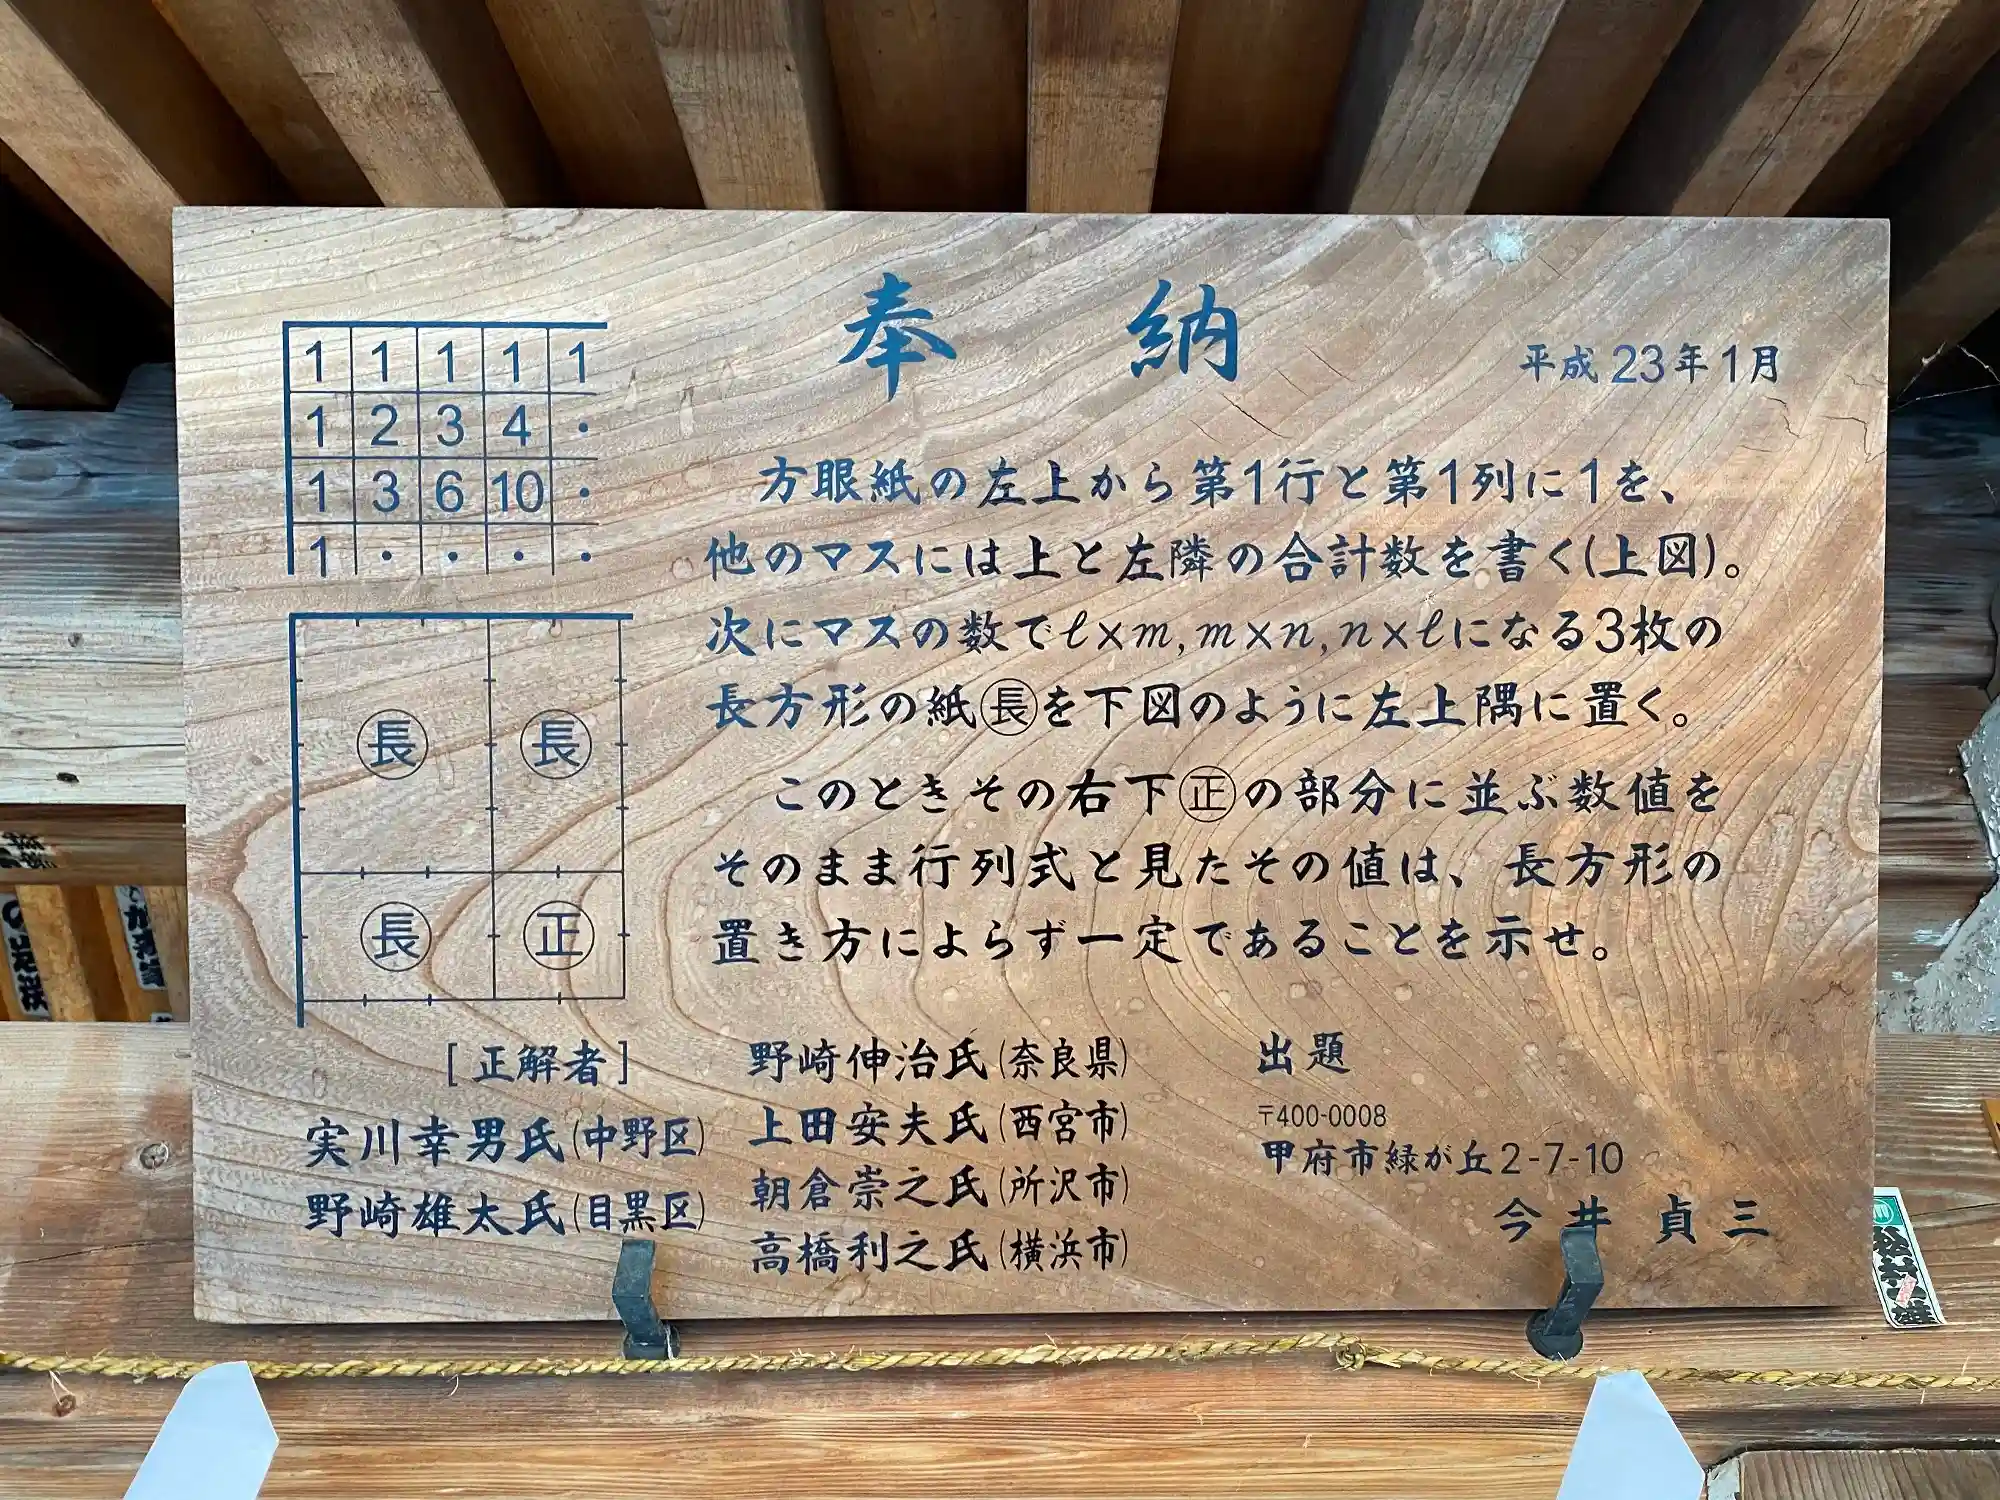 奉 納
平成23年1月
1 1 1 1 1
1 2 3 4 ・
1 3 6 10 ・
1 ・ ・ ・ ・
方眼紙の左上から第1行と第1列に1を、
他のマスには上と左隣の合計数を書く(上図)。
次にマスの数でℓ×m,m×n,n×ℓになる3枚の
長方形の紙㊗を下図のように左上隅に置く。
このときその右下㊣の部分に並ぶ数値を
そのまま行列式と見たその値は、長方形の
置き方によらず一定であることを示せ。
長 長
長 正
[正解者]
実川幸男氏(中野区)
野崎雄太氏(目黒区)
野崎伸治氏(奈良県)
上田安夫氏(西宮市)
朝倉崇之氏(所沢市)
高橋利之氏(横浜市)
出題
〒400-0008
甲府市緑が丘2-7-10
今井 貞三